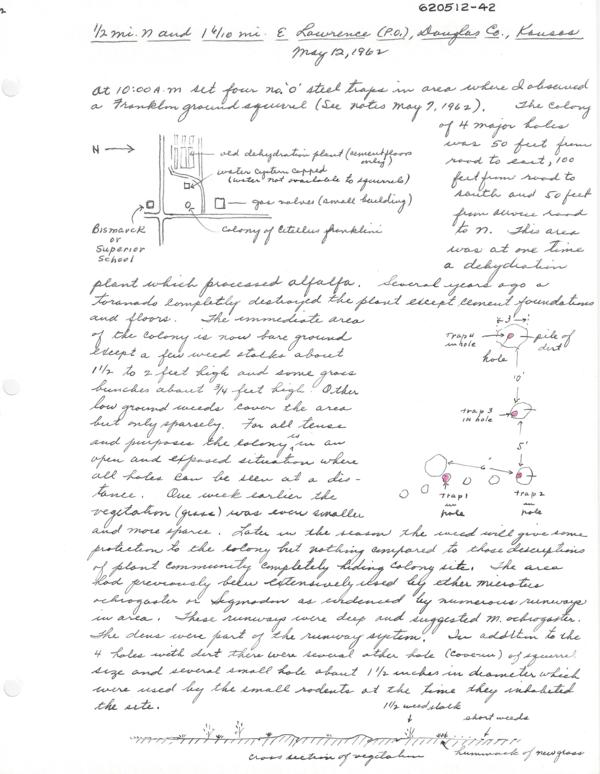 620512-42
1/2 mi. N and 1 6/10 mi. E Lawrence (P.O.), Douglas Co., Kansas
May 12, 1962
At 10:00 A.M set four no. '0' steel traps in area where I observed
a Franklin ground squirrel (See notes May 7, 1962). The colony
of 4 major holes
was 50 feet from
road to east, 100
feet from road to
south and 50 feet
from service road
to N. This area
was at one time
a dehydration
N
old dehydration plant (cement floors
only)
water cistern capped
(water not available to squirrels)
gas valves (small building)
colony of Citellus franklini
Bismarck
or
Superior
School
plant which processed alfalfa. Several years ago a
toranado completly destroyed the plant except cement foundations
and floors. The immediate area
of the colony is now bare ground
except a few weed stalks about
1 1/2 to 2 feet high and some grass
bunches about 3/4 feet high. Other
low ground weeds cover the area
but only sparsely. For all tense
and purposes the colony is in an
open and exposed situation where
all holes can be seen at a dis-
tance. One week earlier the
vegetation (grass) was even smaller
3'
trap 4
in hole
pile of
dirt
hole
10'
trap 3
in hole
5'
6'
trap 1
in
hole
trap 2
in
hole
and more sparce. Later in the season the weed will give some
protection to the colony but nothing compared to those descriptions
of plant community completely hiding colony site. The area
had previously been extensively used by ether microtus
ochrogaster or Sigmodon as evidenced by numerous runways
in area. These runways were deep and suggested M. ochrogaster.
The dens were part of the runway system. In addition to the
4 holes with dirt there were several other hole (coverin) of squirrel
size and several small hole about 1 1/2 inches in diameter which
were used by the small rodents at the time they inhabited
the site.
1 1/2 weed stalk
short weeds
cross section of vegetation
hummock of new grass